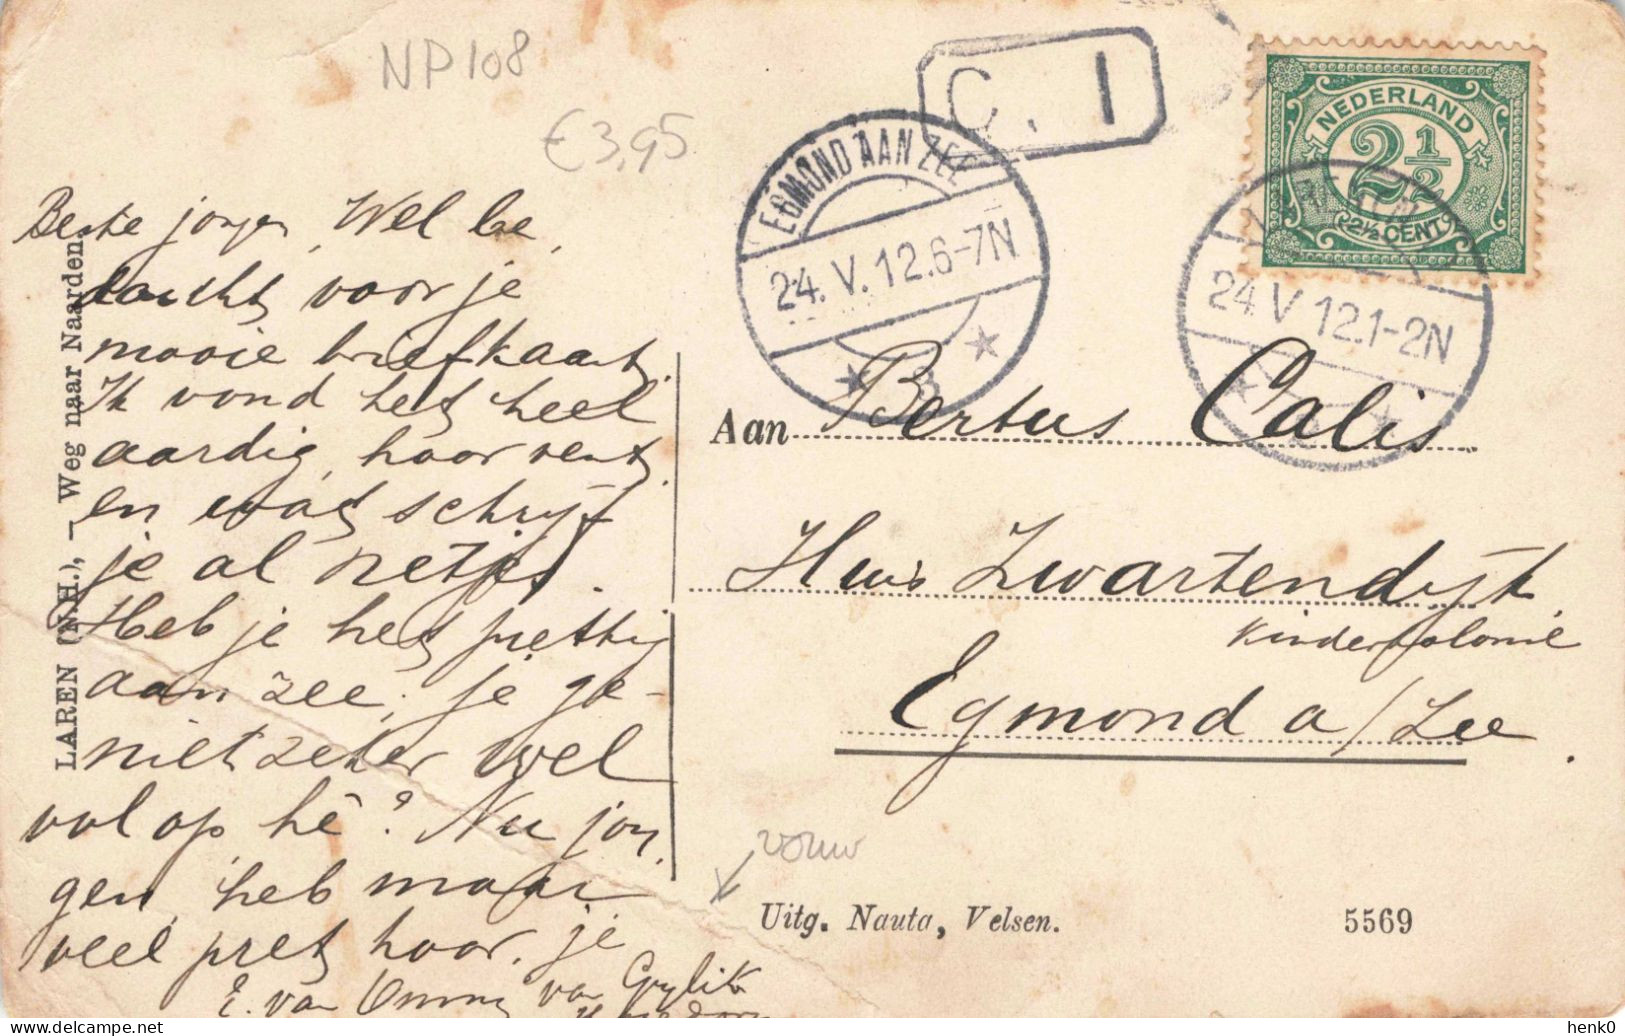 NP108
€3,95
C. 1
EGMOND AAN ZEE
24.V.12.6-7N
NEDERLAND
2½
2½ CENT
24 V 12.1-2N
LAREN (N.H.), – Weg naar Naarden
Beste jongen, Wel be,
dankt voor je
mooie briefkaart.
Ik vond het heel
aardig, hoor vent,
en wat schrijf
je al netjes.
Heb je het prettig
aan zee; je ge-
niet zeker wel
vol op hè? Nu jon
gen, heb maar
veel pret hoor. je
E. van
Aan Bertus Calis
Huis Zwartendijk
Kinderkolonie
Egmond a/Zee.
vouw
Uitg. Nauta, Velsen.
5569
henk0